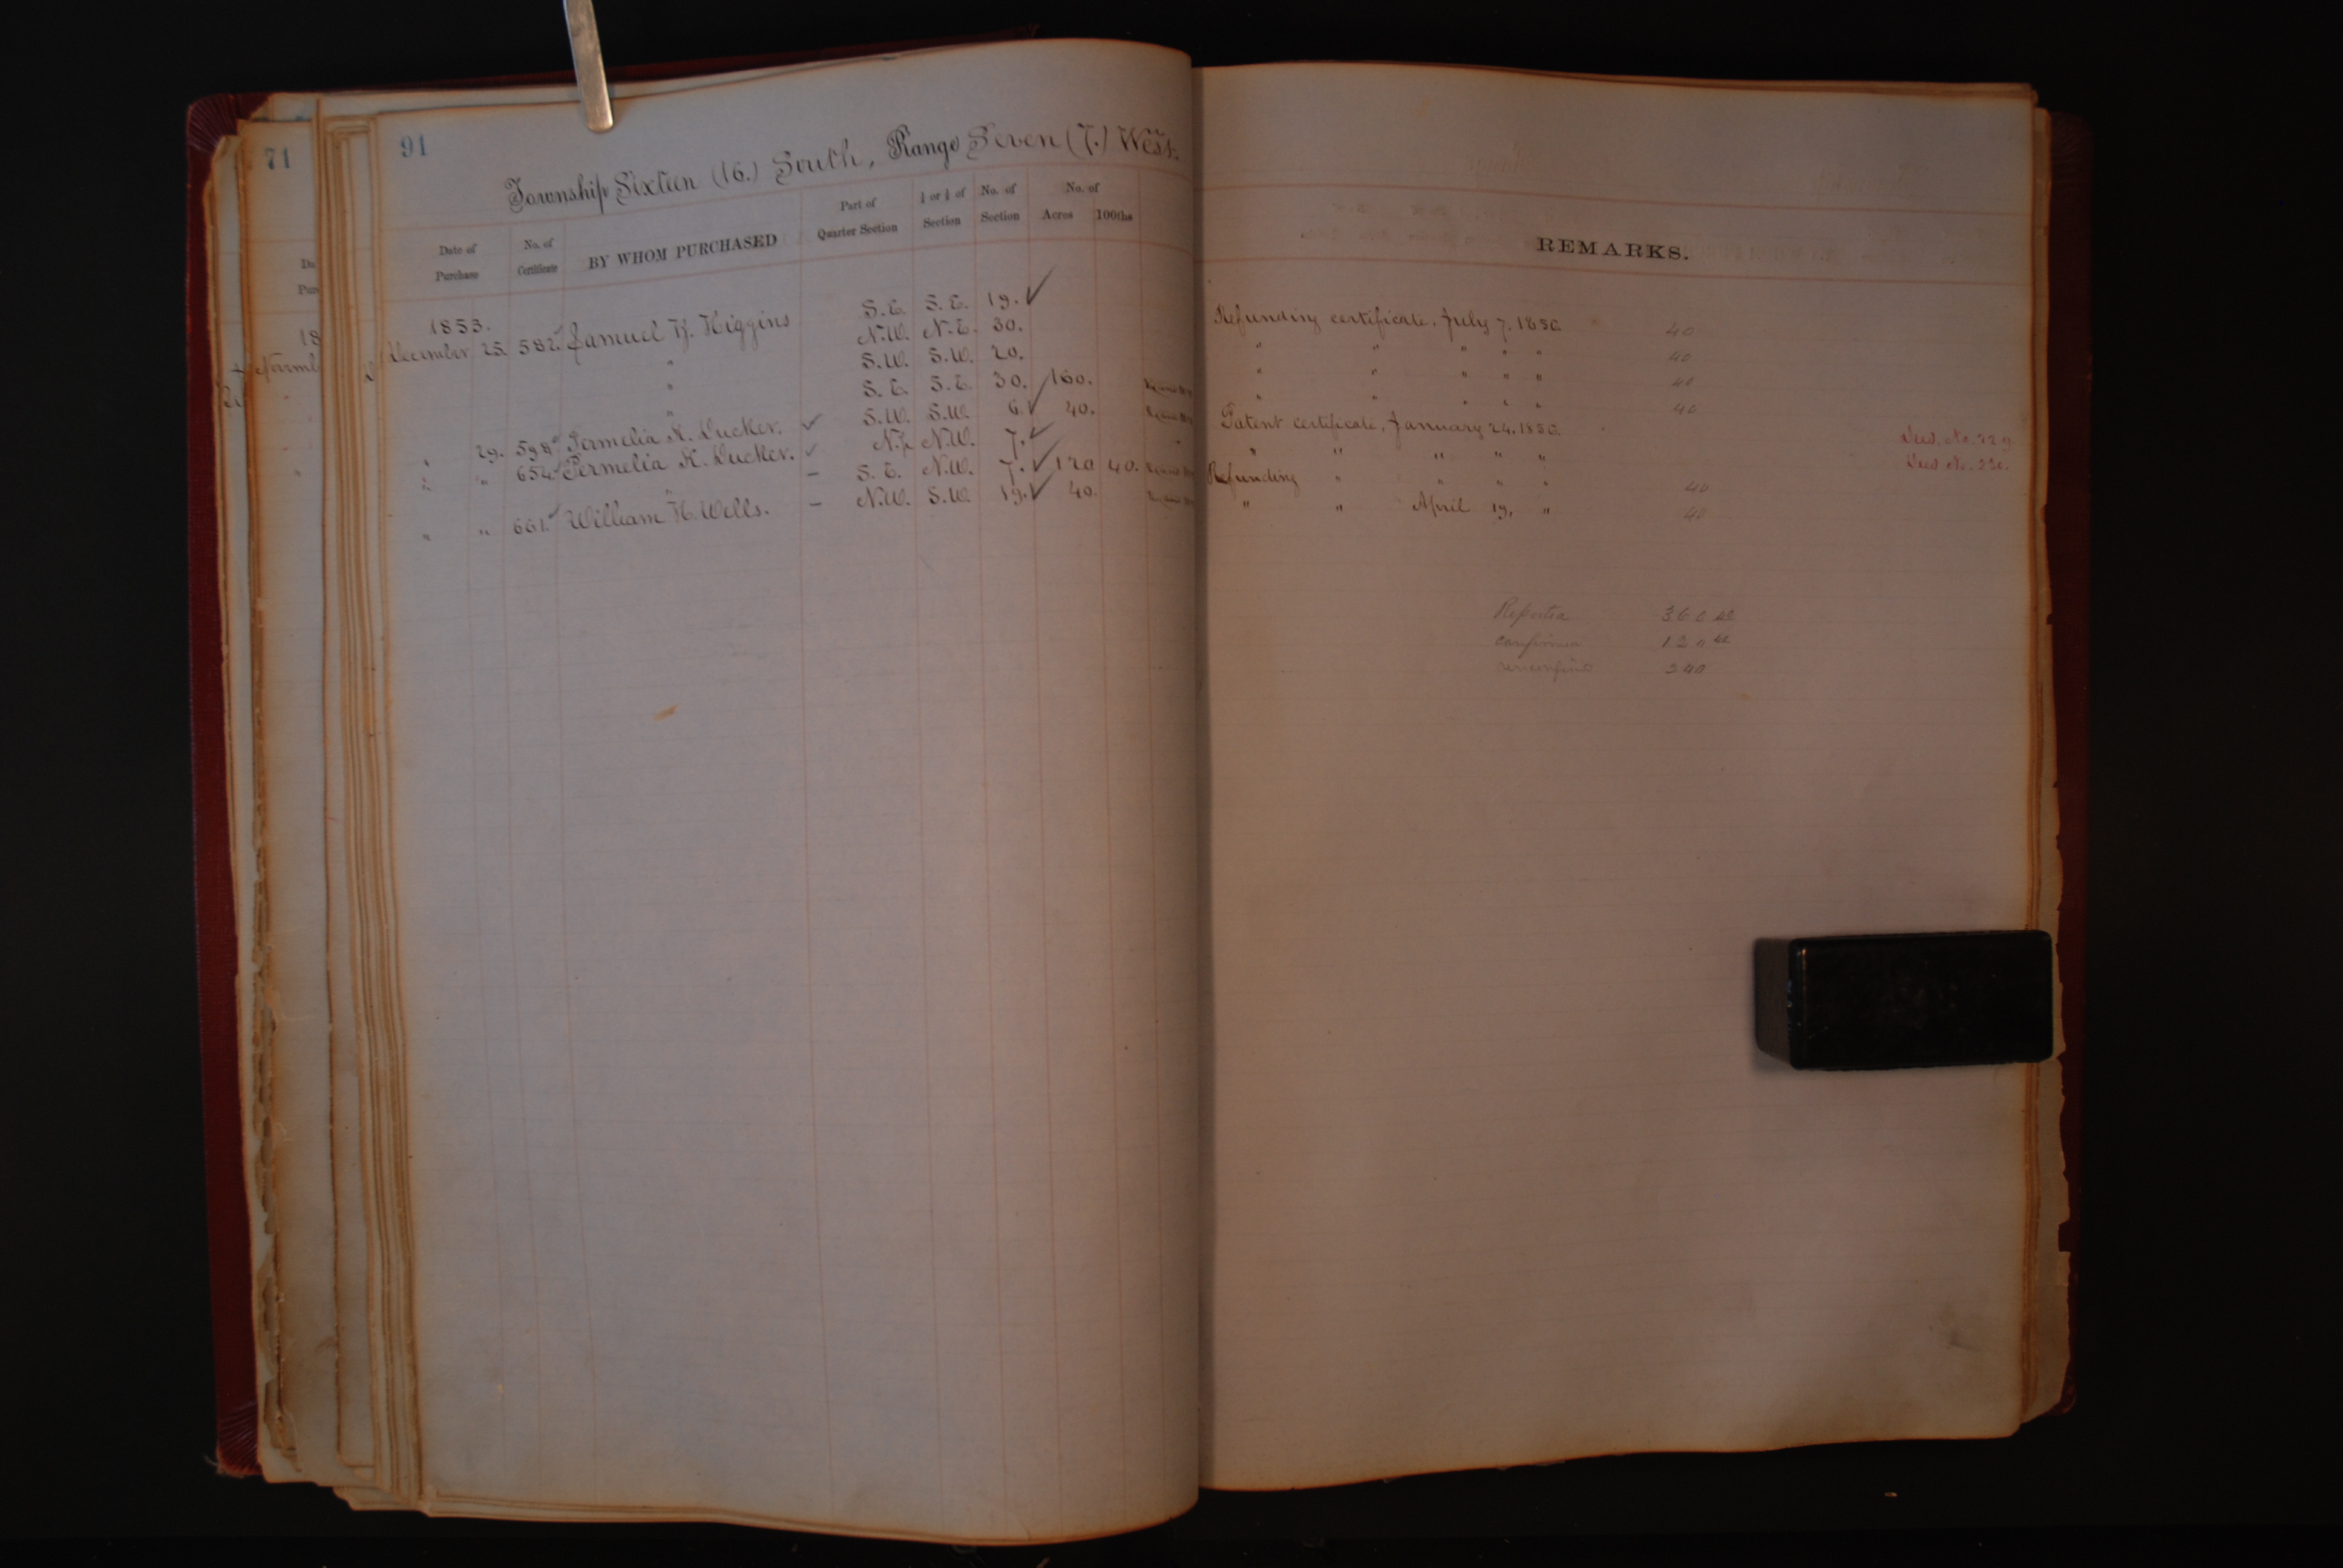 71
91
Township Sixteen (16.) South, Range Seven (7.) West.
Date of Purchase | No. of Certificate | BY WHOM PURCHASED | Part of Quarter Section | ½ or ¼ of Section | No. of Section | No. of Acres | 100ths
REMARKS.
1853.
December 25. 582. Samuel K. Higgins S.E. S.E. 19. ✓ Refunding certificate, July 7. 1856. 40
" N.W. N.E. 30. " " " " " 40
" S.W. S.W. 20. " " " " " 40
" S.E. S.E. 30. 160. " " " " " 40
" 29. 598. Permelia K. Ducker. ✓ S.W. S.W. 6. ✓ 40. Patent certificate, January 24. 1856. Deed. No. 229.
" " 654. Permelia K. Ducker. ✓ N.½ N.W. 7. ✓ " " " " " Deed No. 230.
" – S.E. N.W. 7. ✓ 120 40. Refunding " " " " 40
" " 661. William H. Wells. – N.W. S.W. 19. ✓ 40. " " April 19, " 40
Reported 360 40
confirmed 120 40
unconfirmd 240